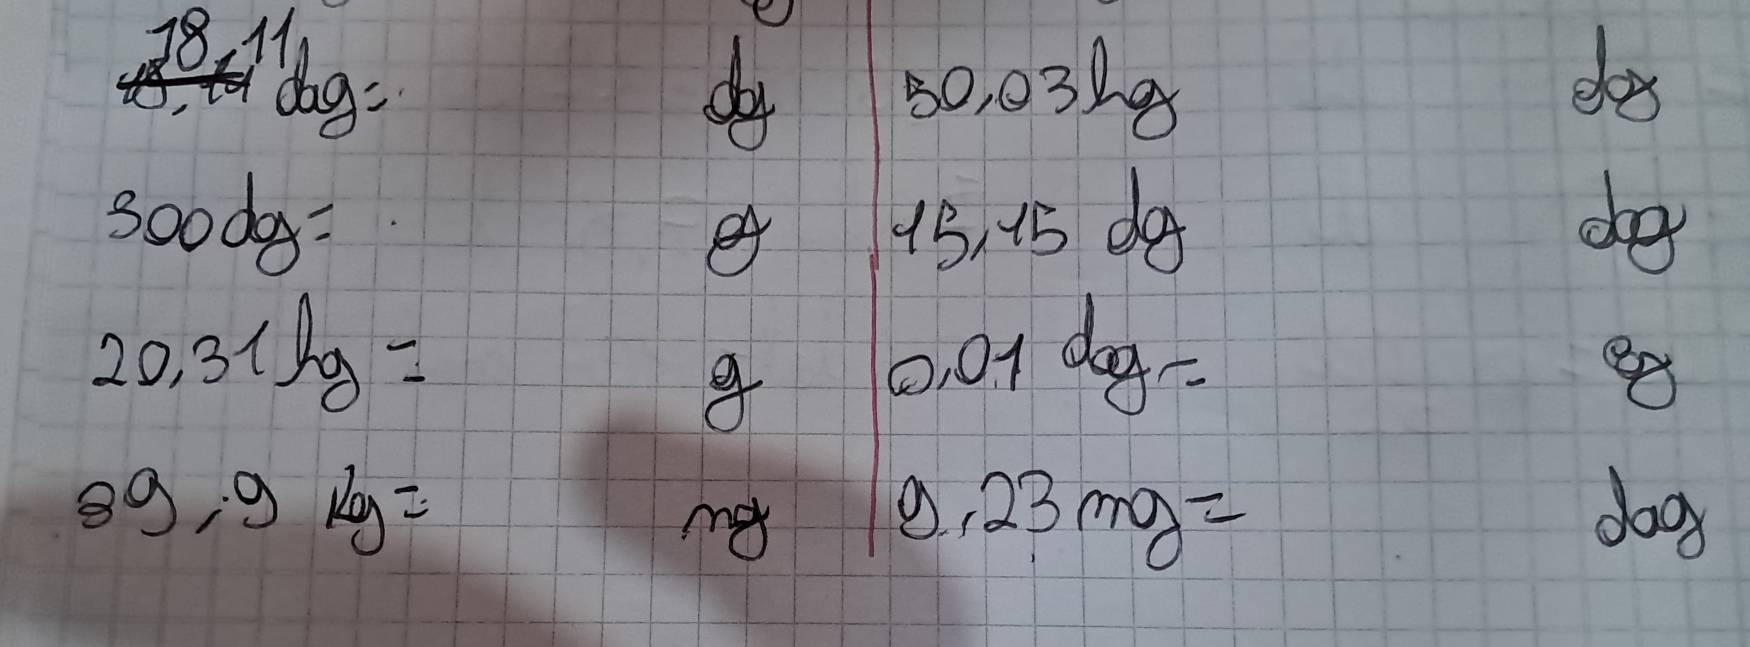 18,11 dag= dg
300dg= g
20,31 hg = g
89,9 kg= mg
50,03hg dg
15,15 dg dag
0,01 dag=
9,23 mg= dag